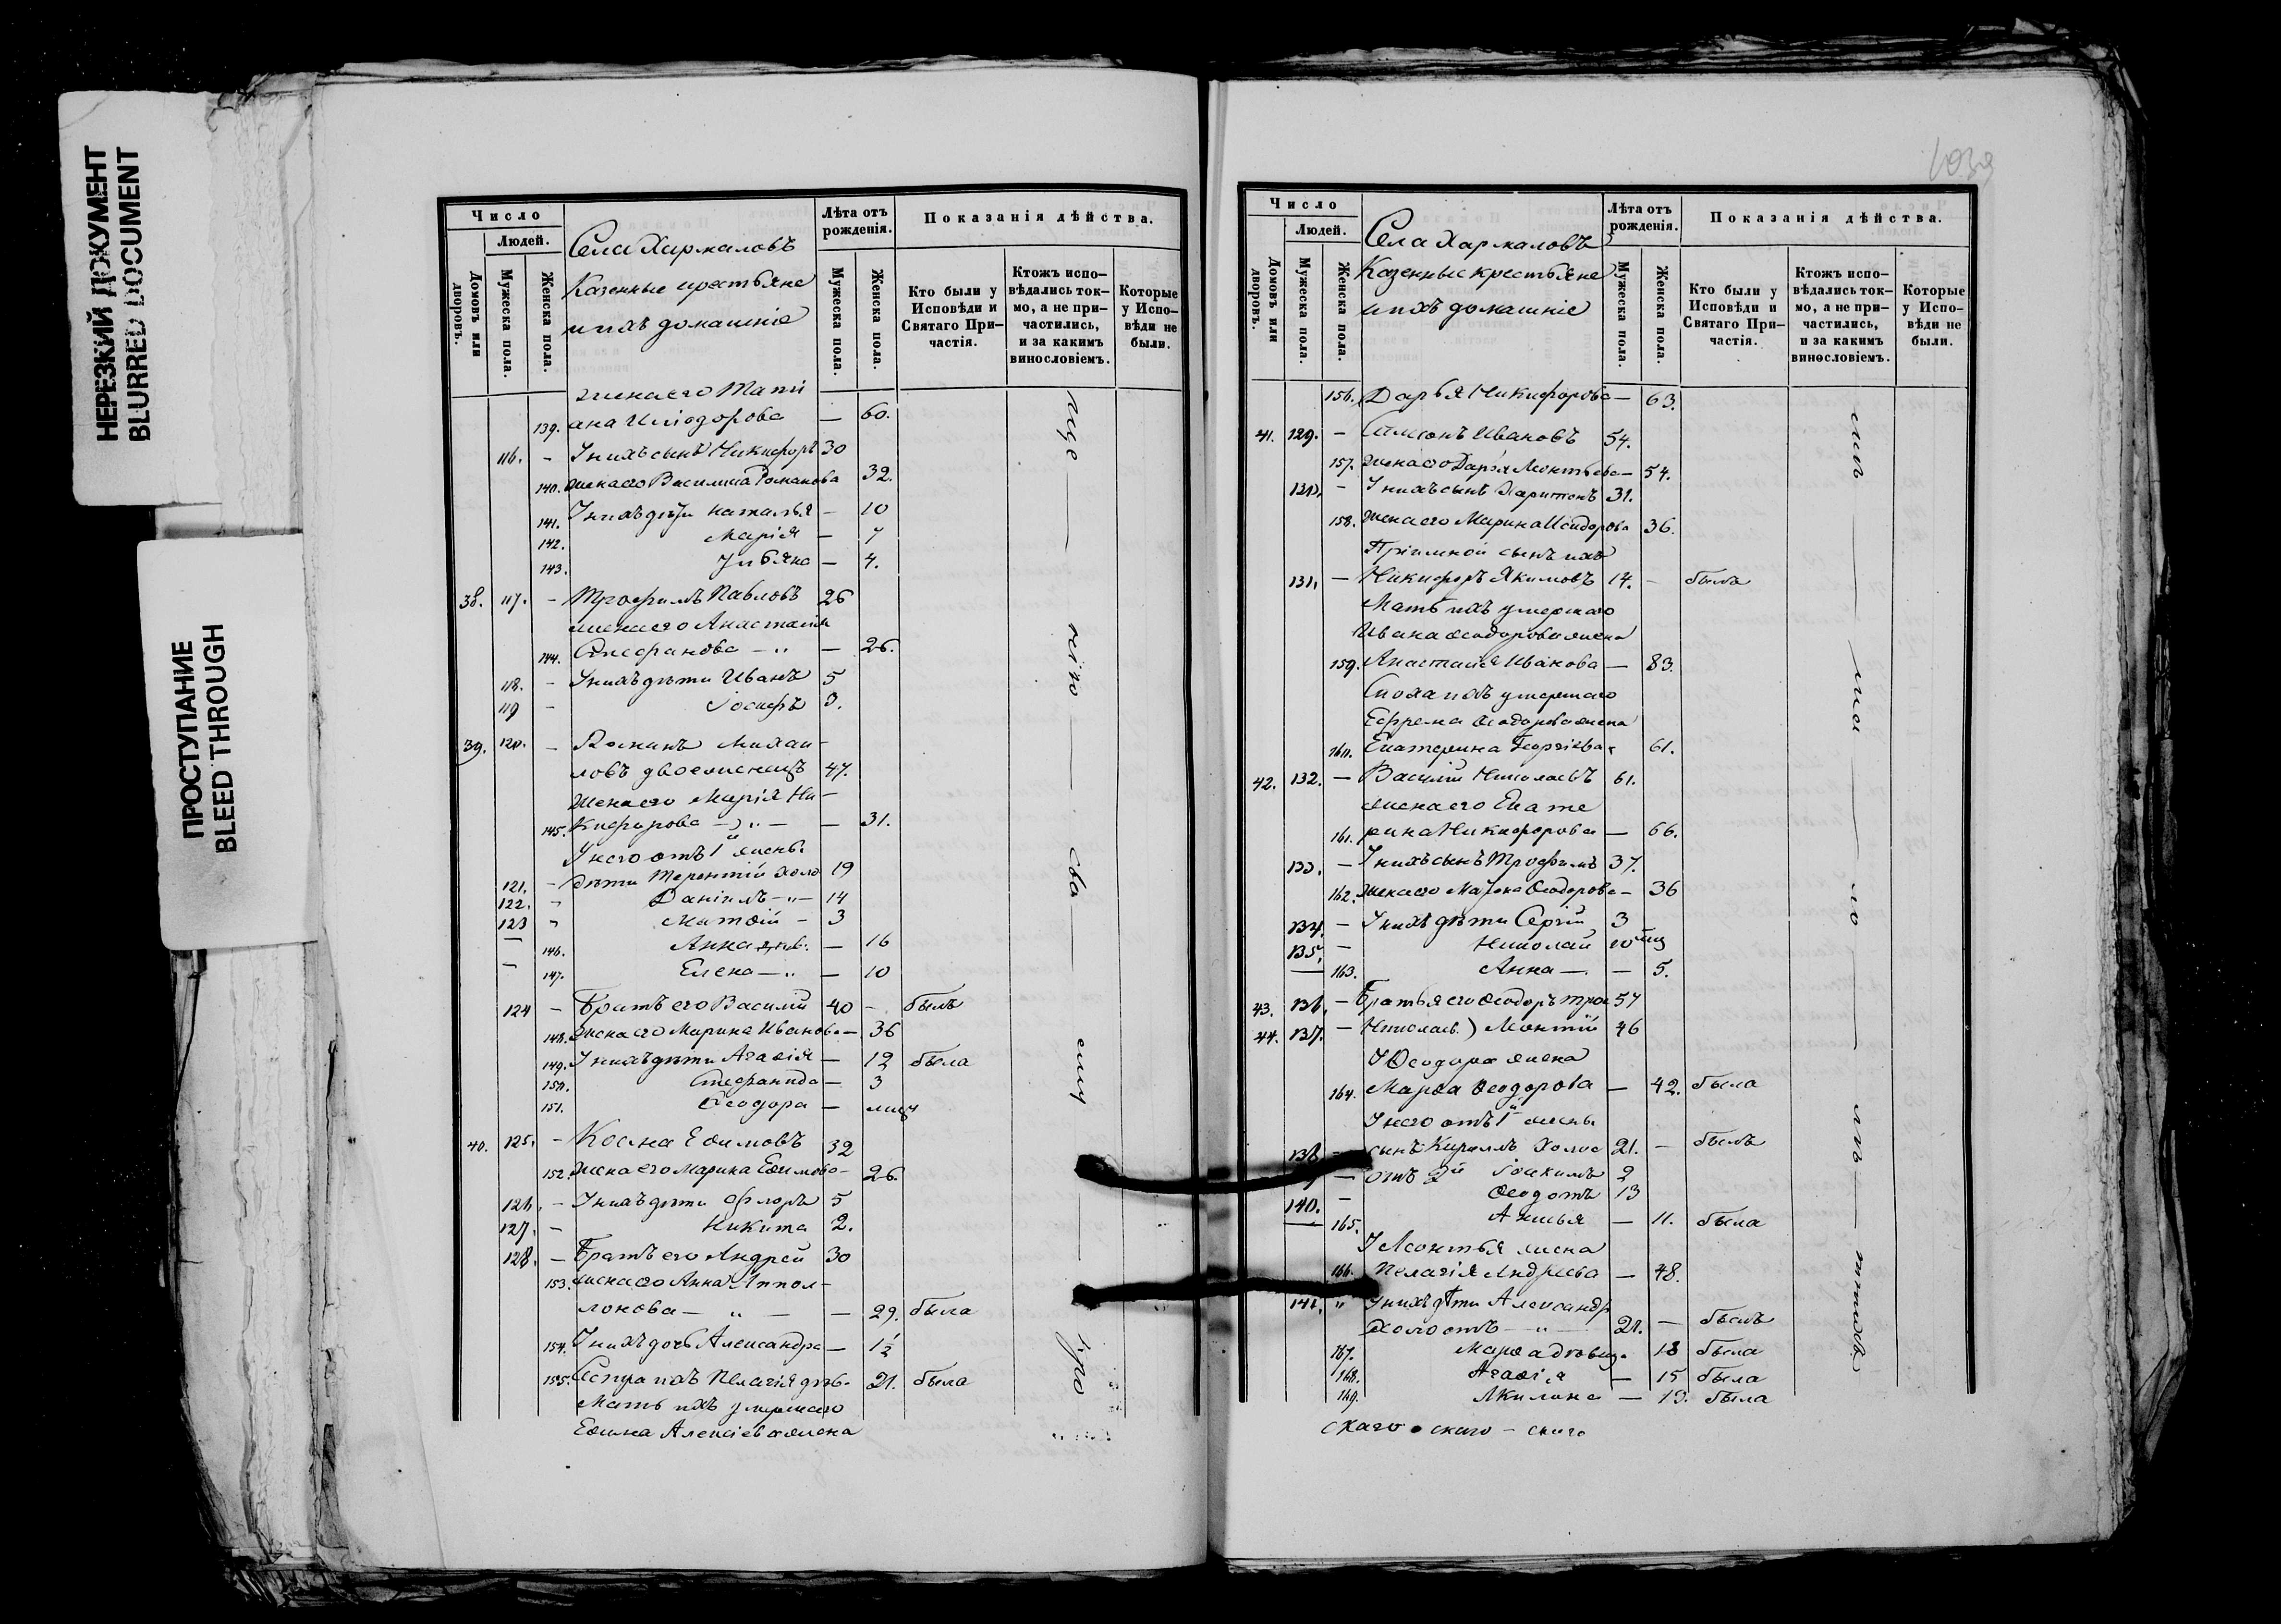 НЕРЕЗКИЙ ДОКУМЕНТ
BLURRED DOCUMENT
ПРОСТУПАНИЕ
BLEED THROUGH
Число
Людей.
Домовъ или дворовъ.
Мужеска пола.
Женска пола.
Села Хармаловъ
Казенные крестьяне
и ихъ домашніе
Лѣта отъ рожденія.
Мужеска пола.
Женска пола.
Показанія дѣйства.
Кто были у Исповѣди и Святаго Причастія.
Ктожъ исповѣдались токмо, а не причастились, и за какимъ винословіемъ.
Которые у Исповѣди не были.
жена его Тати
139. ана Иліодорова — 60.
116. - У нихъ сынъ Никифоръ 30
140. жена его Василиса Романова 32.
141. У нихъ дѣти Наталья — 10
142. Марія — 7
143. Ульяна — 4.
38. 117. - Трофимъ Павловъ 26
жена его Анастасія
144. Стефанова — „ — 26.
118. - У нихъ дѣти Иванъ 5
119 - Іосифъ 3.
39. 120. - Михаи-
ловъ двоеженецъ 47.
жена его Марія Ни-
145. кифорова — „ — — 31.
У него отъ 1й жены
121. - дѣти Терентій холо 19
122. - Даніилъ — „ — 14
123 „ Матѳій - 3
146. Анна дѣв. — 16
147. Елена — „ — 10
124 - Братъ его Василій 40 - былъ
148. жена его Марина Иванова — 36
149. У нихъ дѣти Агаѳія — 12 была
150. Стефанида — 3
151. Ѳеодора — мѣц
40. 125. - Косма Еѳимовъ 32
152. жена его Марина Еѳимова - 26.
126. - У нихъ дѣти Флоръ 5
127. - Никита 2.
128. - Братъ его Андрей 30
153. жена его Анна Аппол-
лонова — „ — — 29. была
154. У нихъ дочь Александра — 1½
155. Сестра ихъ Пелагія дѣв. 21. была
Мать ихъ умершаго
Еѳима Алексіева жена
Число
Людей.
Домовъ или дворовъ.
Мужеска пола.
Женска пола.
Села Хармаловъ
Казенные крестьяне
и ихъ домашніе
Лѣта отъ рожденія.
Мужеска пола.
Женска пола.
Показанія дѣйства.
Кто были у Исповѣди и Святаго Причастія.
Ктожъ исповѣдались токмо, а не причастились, и за какимъ винословіемъ.
Которые у Исповѣди не были.
156. Дарья Никифорова — 63.
41. 129. - Симеонъ Ивановъ 54.
157. жена его Дарія Леонтьева — 54.
130. - У нихъ сынъ Харитонъ 31.
158. жена его Марина Исидорова 36.
Пріимной сынъ ихъ
131. — Никифоръ Якимовъ 14. - былъ
Мать ихъ умершаго
Ивана Ѳеодорова жена
159. Анастасія Иванова — 83.
Сноха ихъ умершаго
Ефрема Ѳеодорова жена
160. Екатерина Георгіева 61.
42. 132. — Василій Николаевъ 61.
жена его Екате
161. рина Никифорова — 66.
133. — У нихъ сынъ Трофимъ 37.
162. жена его Ѳеодорова — 36
134. - У нихъ дѣти Сергій 3
135. - Николай 10 мѣц
163. Анна —. — 5.
43. 136. — Братья его Ѳеодоръ трое 57
44. 137. — Николаев.) Леонтій 46
У Ѳеодора жена
164. Марѳа Ѳеодорова — 42. была
У него отъ 1й жены
138 - сынъ Кириллъ холос 21. - былъ
— отъ 2й Іоакимъ 2
140. - Ѳеодотъ 13
165. — 11. была
У Леонтья жена
166. Пелагія Андреева — 48.
141. „ У нихъ дѣти Александр
холостъ — „ — 21. — былъ
167. Марѳа дѣвиц. 18 была
168. Агаѳія — 15 была
169. Акилина — 13. была
скаго скаго — скаго